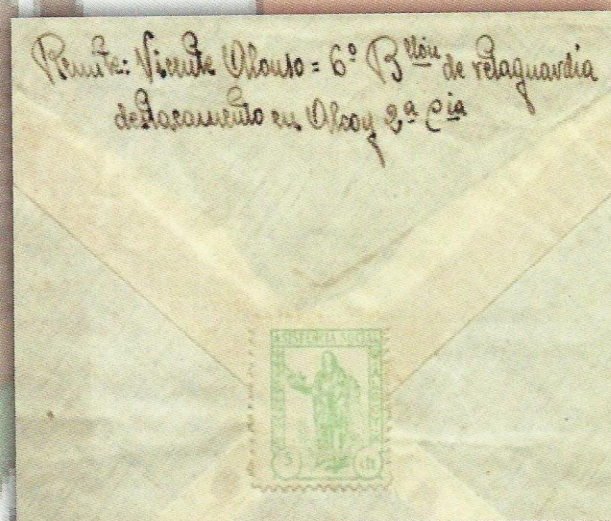 Remite: Vicente Alonso = 6º Bllón de retaguardia
destacamento en Alcoy 2ª Cia
ASISTENCIA SOCIAL
5